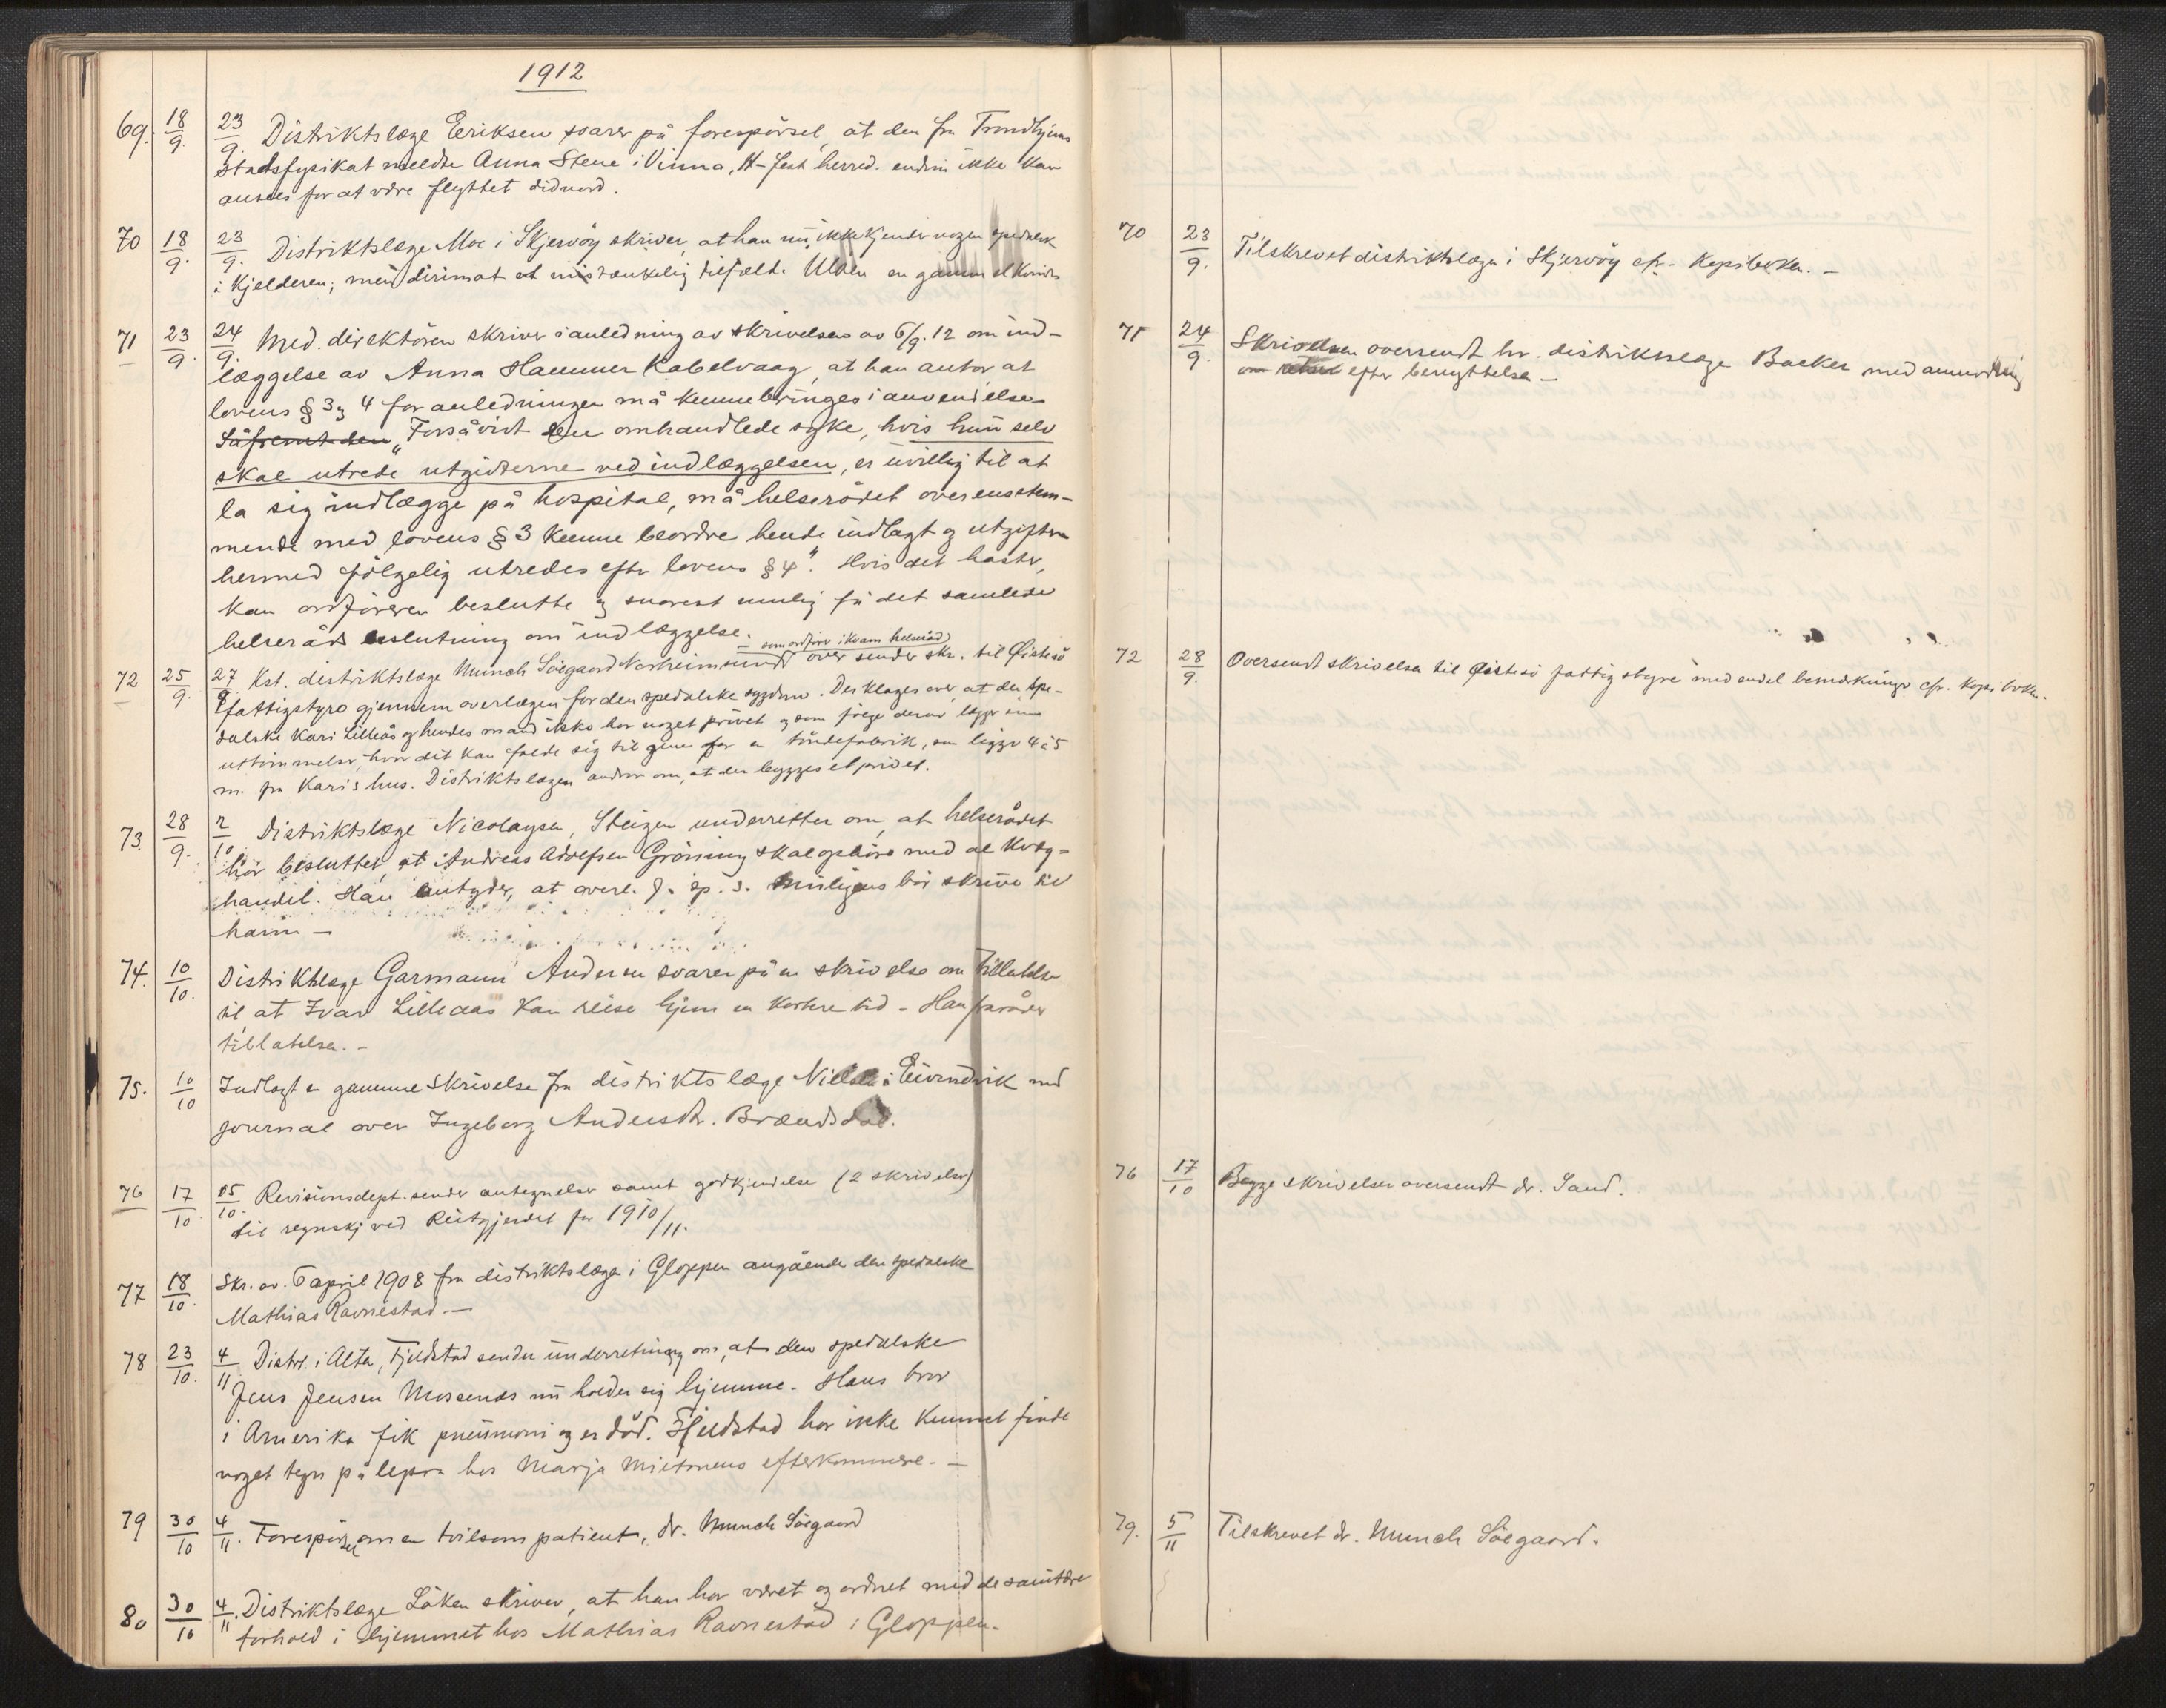 1912
69. 18/9. 23/9. Distriktslæge Eriksen svarer på forespörsel, at den fra Trondhjems
stadsfysikat meldte Anna Stene i Vinna, herred. endnu ikke kan
ansees for at være flyttet didnord.
70 18/9. 23/9. Distriktslæge Moe i Skjervöy skriver, at han nu ikke kjender nogen spedalsk
i Kjelderen; men derimot et mistænkelig tilfælde. en gammel kvinde
71 23/9. 24/9. Med. direktören skriver i anledning av skrivelsen av 6/9. 12 om ind-
læggelse av Anna Hammer Kabelvaag, at han antar at
lovens § 3 og 4 for anledningen må kunne bringes i anvendelse
Såfremt den „Forsåvidt den omhandlede syke, hvis hun selv
skal utrede utgifterne ved indlæggelsen, er uvillig til at
la sig indlægge på hospital, må helserådet overensstem-
mende med lovens § 3 kunne beordre hende indlagt og utgifterne
hermed fölgelig utredes efter lovens § 4". Hvis det haster,
kan ordföreren beslutte og snarest mulig få det samlede
helseråds beslutning om indlæggelse.
— som ordförer i Kvam helseråd
72 25/9. 27/9. Kst. distriktslæge Munch Söegaard Norheimsund over sender skr. til Östesö
fattigstyre gjennem overlægen for den spedalske sygdom. Der klages over, at den spe-
dalske Kari Lilleås og hendes mand ikke har noget privet og som fölge derav lægger sine
uttömmelser, hvor det kan falde sig til gene for en töndefabrik, som ligger 4 à 5
m. fra Kari's hus. Distriktslægen andrar om, at der bygges et privet.
73. 28/9. 2/10 Distriktslæge Nicolaysen, Steigen underretter om, at helserådet
har besluttet, at Andreas Adolfsen Gröning skal ophöre med al kvæg=
handel. Han antyder, at overl. f. sp. s. muligens bör skrive til
ham —
74. 10/10. Distriktslæge Garmann Andersen svarer på en skrivelse om tilladelse
til at Ivar Lilleaas kan reise hjem en kortere tid - Han fraråder
tillatelse. -
75. 10/10 Indlagt en gammel skrivelse fra distriktslæge Nielsen i Eivindvik med
journal over Ingeborg Andersdtr. Brændsdal.
76 17/10 15/10. Revisionsdept. sender antegnelser samt godkjendelse (2 skrivelser)
til regnskj ved Reitgjerdet for 1910/11.
77 18/10. Skr. av 6 april 1908 fra distriktslægen i Gloppen angående den spedalske
Mathias Ravnestad. —
78 23/10. 4/11 Distrl. i Alta, Fjeldstad sender underretning om, at den spedalske
Jens Jensen Mossenes nu holder sig hjemme. Hans bror
i Amerika fik pneumoni og er död. Fjeldstad har ikke kunnet finde
noget tegn på lepra hos Marja efterkommere. —
79 30/10 4/11. Forespörsel om en tvilsom patient, dr. Munch Söegaard
80 30/10 4/11. Distriktslæge Löken skriver, at han har været og ordnet med de sanitære
forhold i hjemmet hos Mathias Ravnestad i Gloppen.
70 23/9. Tilskrevet distriktslægen i Skjervöy cfr. Kopiboken. —
71 24/9. Skrivelsen oversendt hr. distriktslæge Backer med anmodning
om retur efter benyttelse —
72 28/9. Oversendt skrivelsen til Östesö fattigstyre med endel bemærkninger cfr. kopiboken.
76 17/10 Begge skrivelser oversendt dr. Sand.
79. 5/11 Tilskrevet dr. Munch Söegaard.